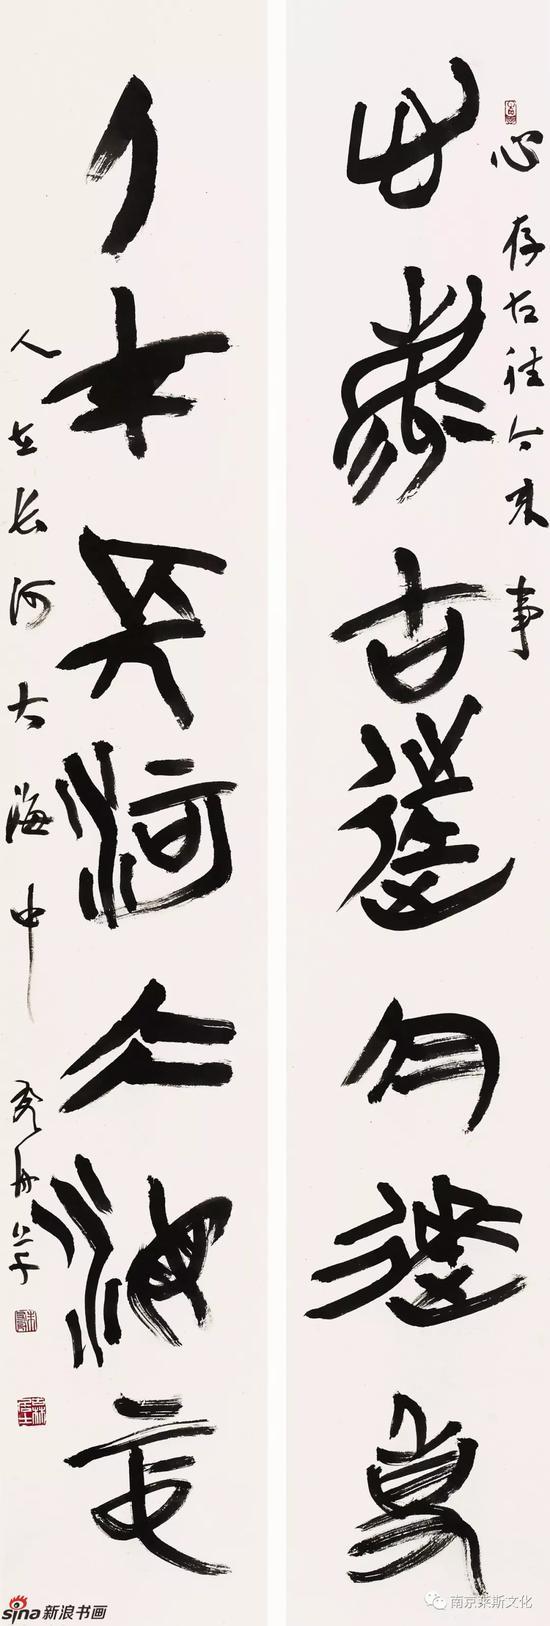 心存古往今来事
心存古往今來事
人在長河大海中
人在长河大海中
sina新浪书画
南京莱斯文化